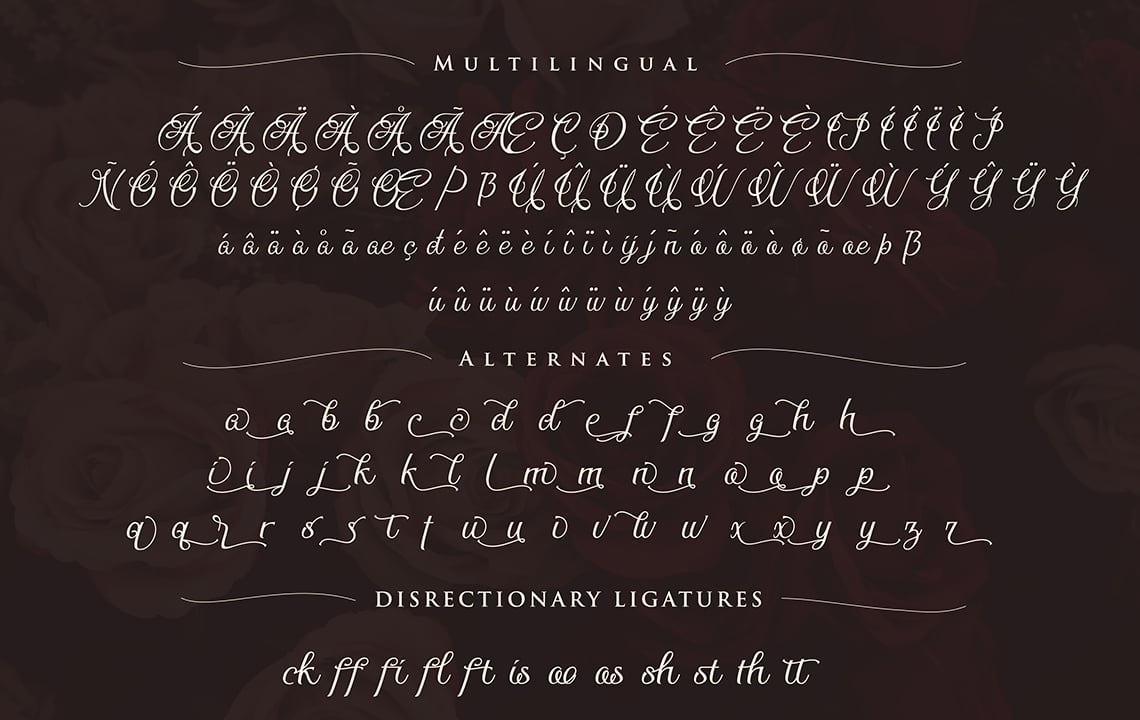 MULTILINGUAL
Á Â Ä À Å Ã Æ Ç Ð É Ê Ë È IJ Í Î Ï Ì J́
Ñ Ó Ô Ö Ò Ø Õ Œ Þ ß Ú Û Ü Ù Ẃ Ŵ Ẅ Ẁ Ý Ŷ Ÿ Ỳ
á â ä à å ã æ ç đ é ê ë è í î ï ì ij j́ ñ ó ô ö ò ø õ œ þ ß
ú û ü ù ẃ ŵ ẅ ẁ ý ŷ ÿ ỳ
ALTERNATES
a a b b c c d d e f f g g h h
i i j j k k l l m m n n o o p p
q q r r s s t t u u v v w w x x y y z z
DISRECTIONARY LIGATURES
ck ff fi fl ft is oo os sh st th tt